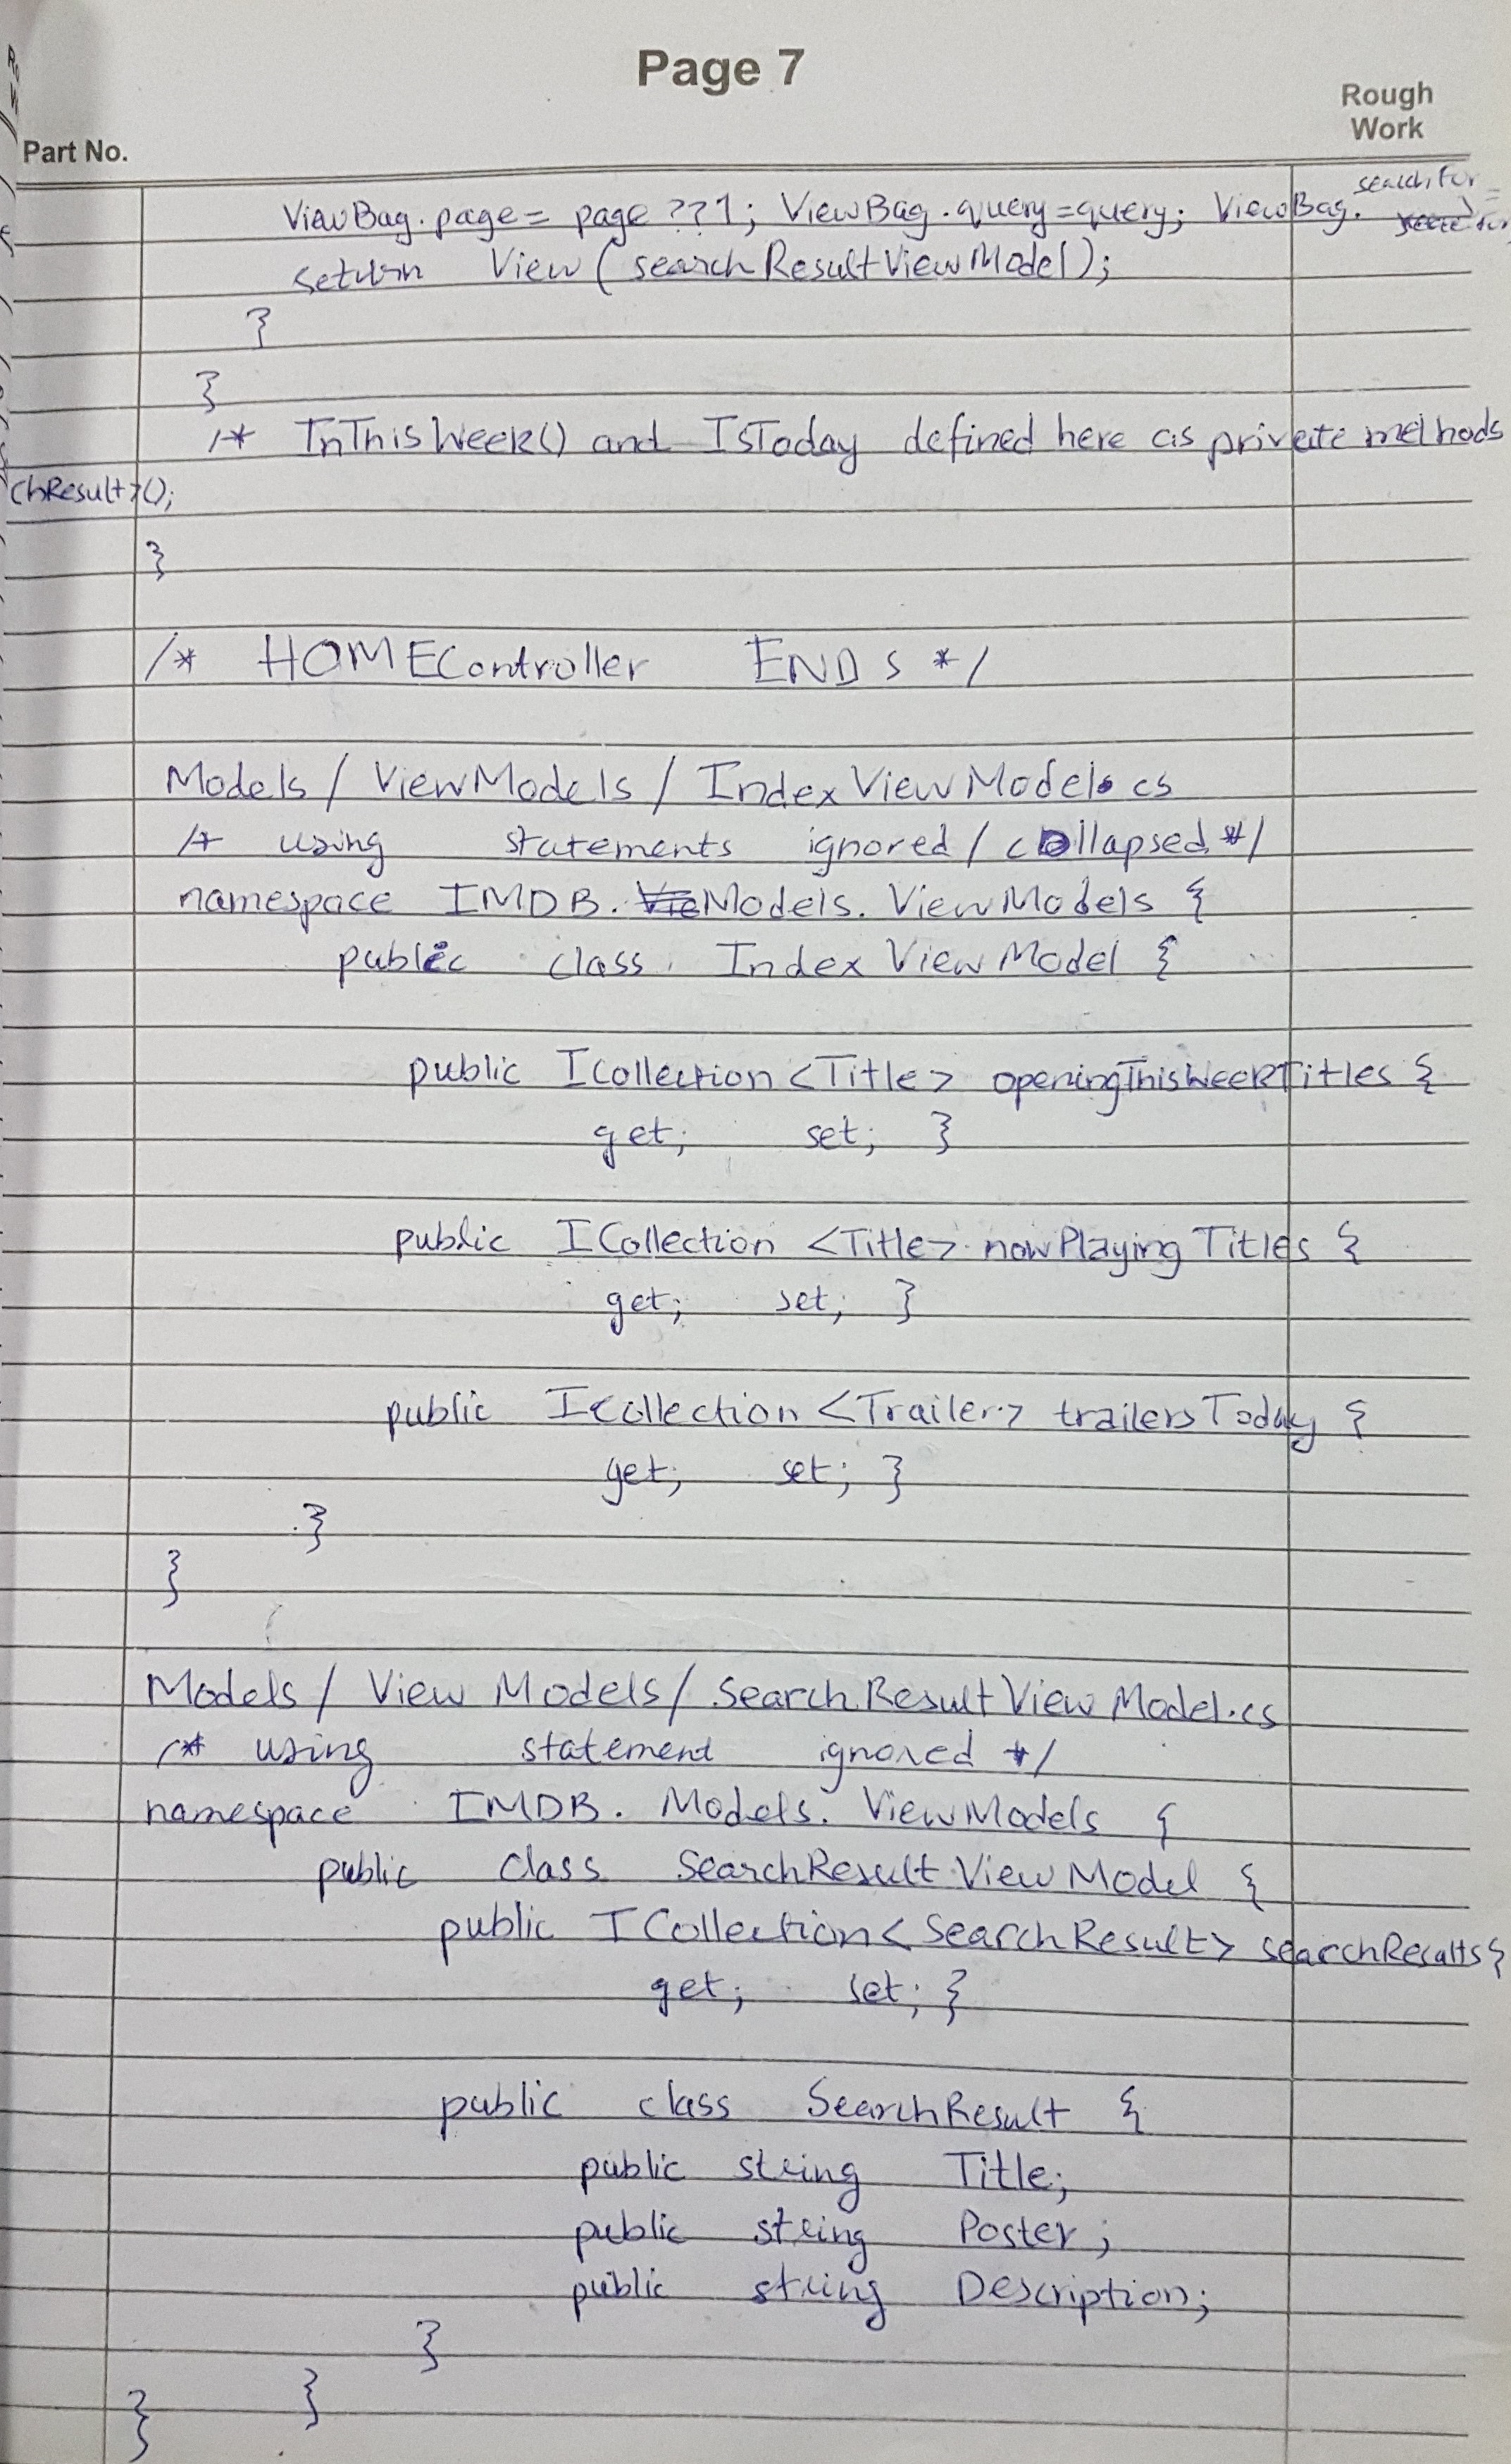 Page 7
Rough
Work
Part No.
ViewBag.page = page ?? 1; ViewBag.query = query; ViewBag. searchFor =
return View (searchResultViewModel);
}
}
/* InThisWeek() and IsToday defined here as private methods
chResult>();
}
/* HOMEController ENDS */
Models / ViewModels / IndexViewModel.cs
/* using statements ignored / collapsed */
namespace IMDB.Models.ViewModels {
public class IndexViewModel {
public ICollection <Title> openingThisWeekTitles {
get; set; }
public ICollection <Title> nowPlayingTitles {
get; set; }
public ICollection <Trailer> trailersToday {
get; set; }
}
}
Models / View Models / SearchResultViewModel.cs
/* using statement ignored */
namespace IMDB.Models.ViewModels {
public class SearchResultViewModel {
public ICollection<SearchResult> searchResults {
get; set; }
public class SearchResult {
public string Title;
public string Poster;
public string Description;
}
}
}